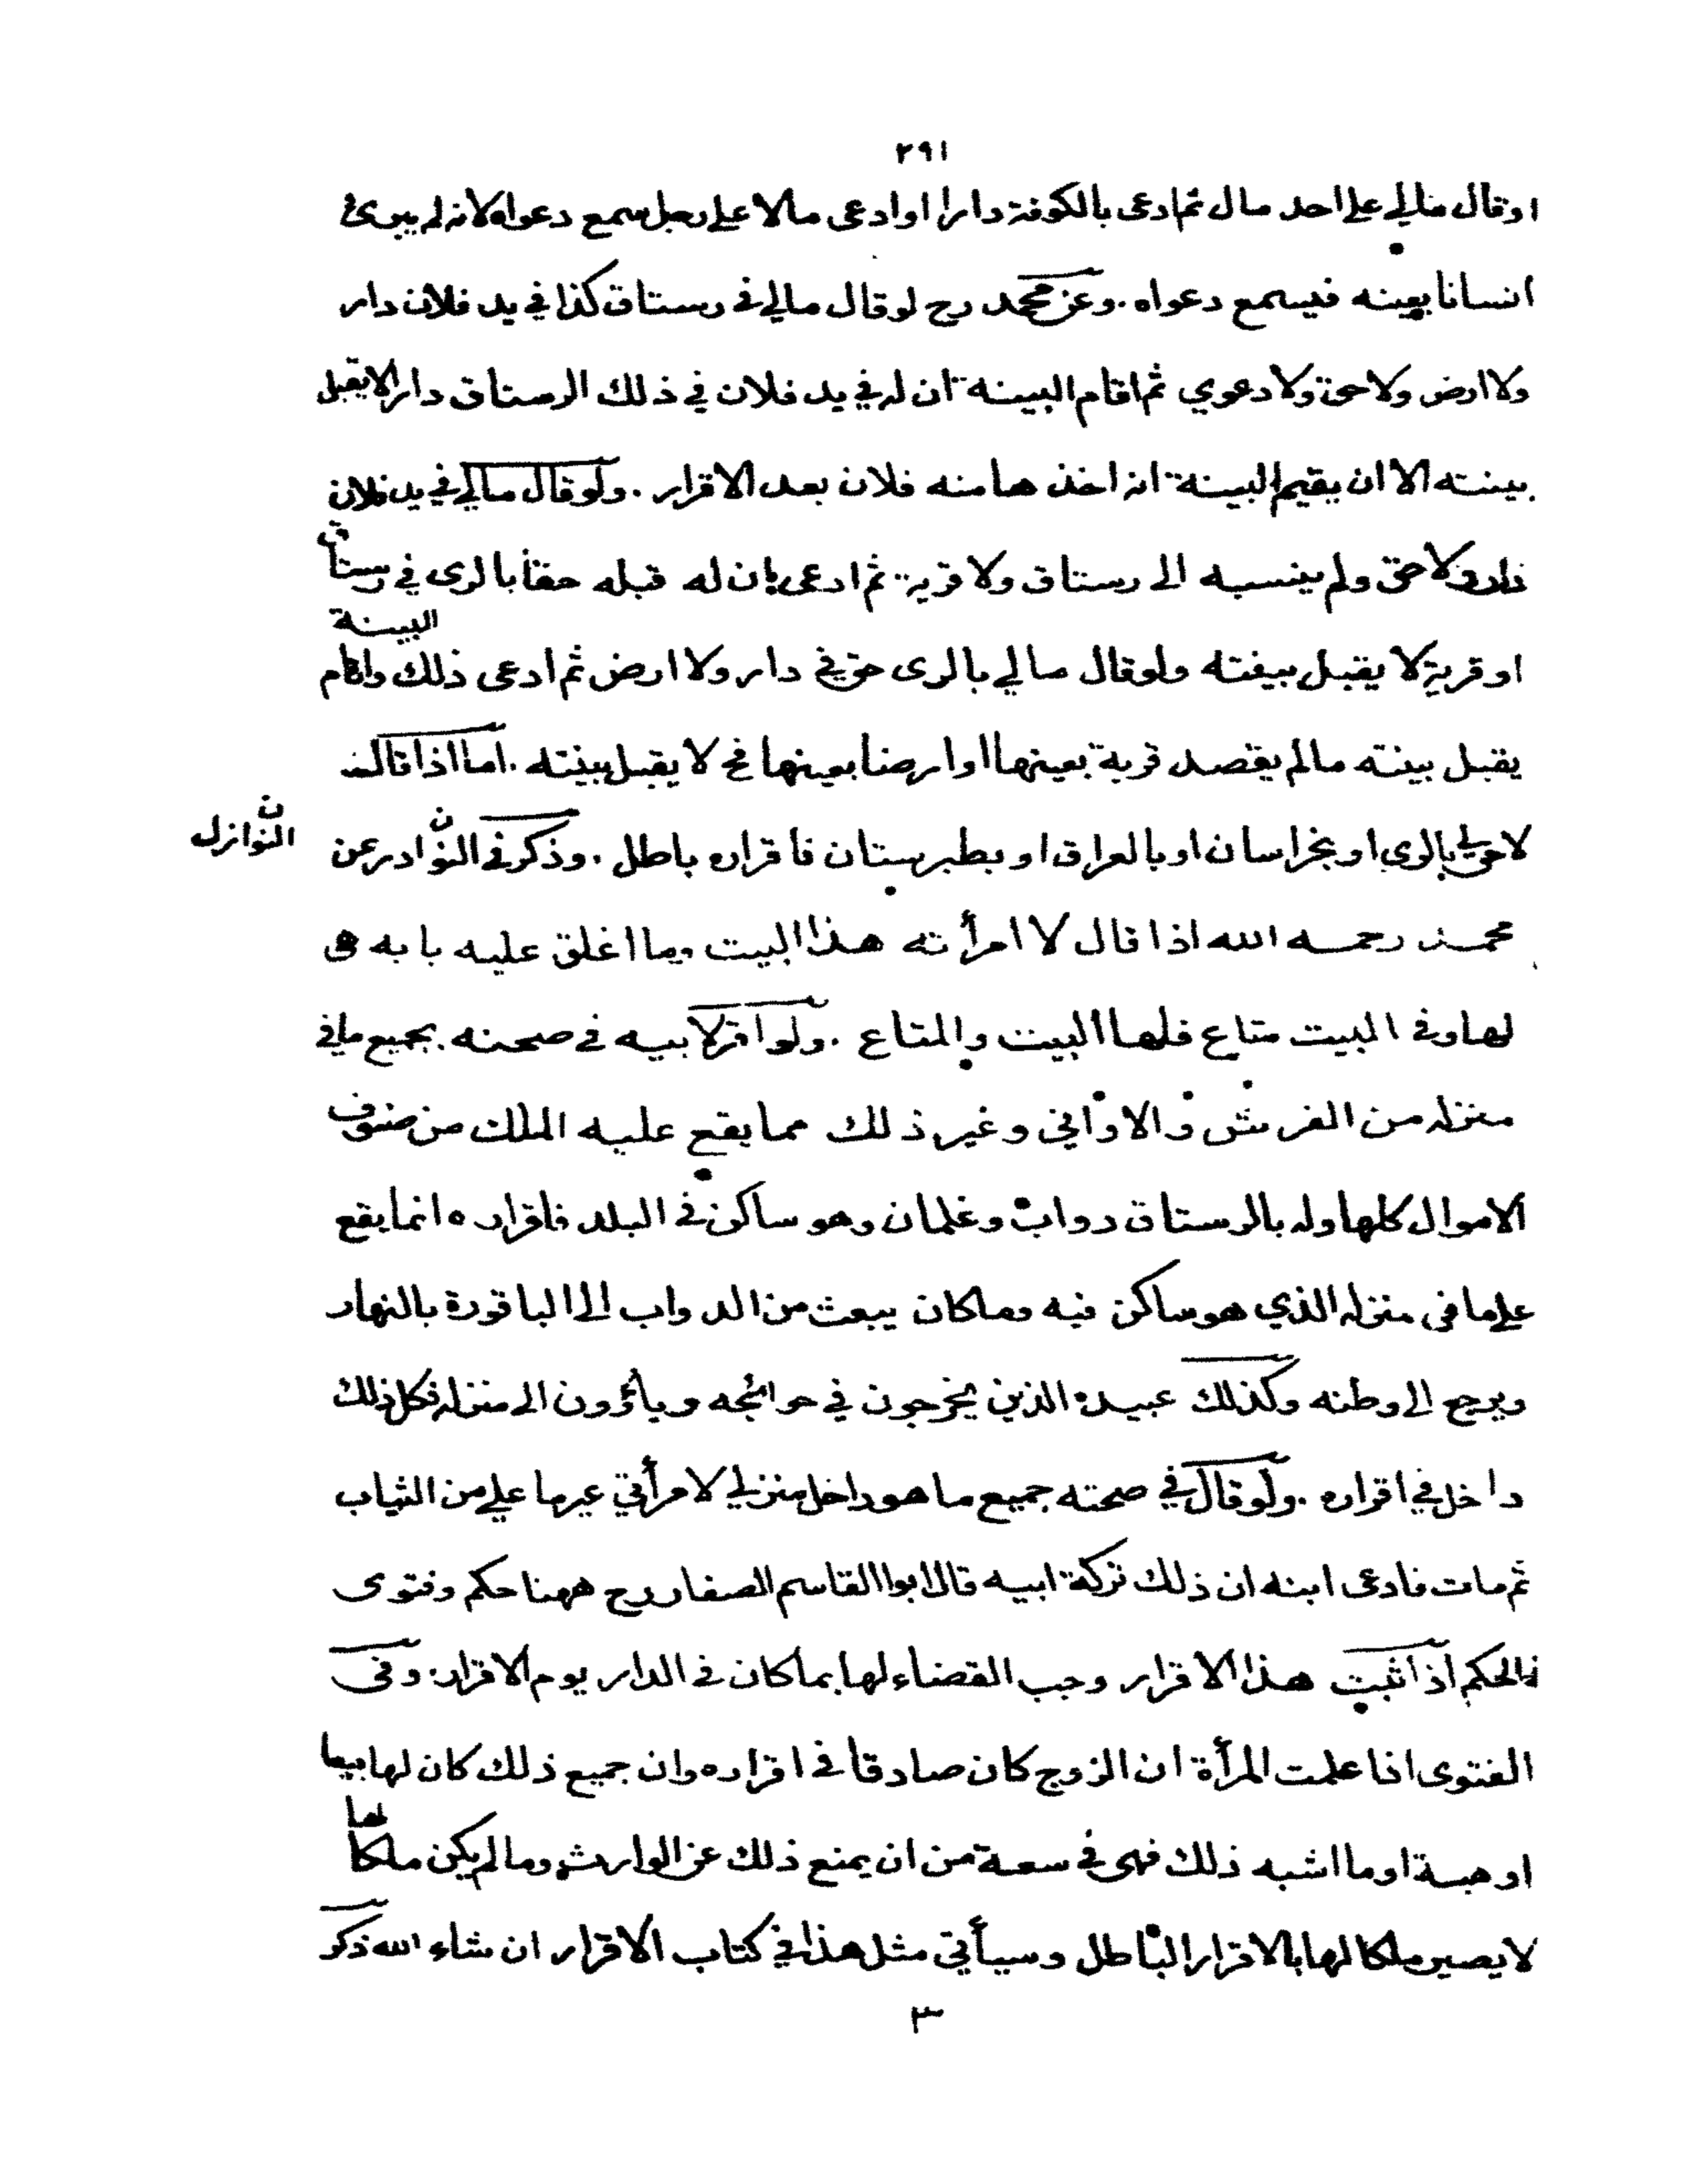 ٢٩١
اوقال مالي على احد مال ثم ادعى بالكوفة دارا او ادعى مالا على رجل سمع دعواه لانه لم يبرئ
انسانا بعينه فيسمع دعواه . وعن محمد رح لو قال مالي في رستاق كذا في يد فلان دار
ولا ارض ولا حق ولا دعوي ثم اقام البينة ان له في يد فلان في ذلك الرستاق دارا لا يقبل
بينته الا ان يقيم البينة انه اخذها منه فلان بعد الاقرار . ولو قال مالي في يد فلان
دار ولا حق ولم ينسبه الى رستاق ولا قرية ثم ادعى ان له قبله حقا بالرى في رستاق
او قرية لا يقبل بينته ولو قال مالي بالرى حق في دار ولا ارض ثم ادعى ذلك واقام البينة
يقبل بينته مالم يقصد قرية بعينها او ارضا بعينها فح لا يقبل بينته . اما اذا قال
لا حق لي بالرى او بخراسان او بالعراق او بطبرستان فاقراره باطل . وذكر في النوادر عن
ن النوازل
محمد رحمه الله اذا قال لا امرأته هذا البيت وما اغلق عليه بابه هى
لها وفى البيت متاع فلها البيت والمتاع . ولو اقر لابيه في صحته بجميع ما في
منزله من الفرش والاواني وغير ذلك مما يقع عليه الملك من صنوف
الاموال كلها وله بالرستاق دواب وغلمان وهو ساكن في البلد فاقراره انما يقع
على ما فى منزله الذي هو ساكن فيه وما كان يبعث من الدواب الى الباقورة بالنهار
ويرجع الى وطنه وكذلك عبيده الذين يخرجون في حوائجه ويأوون الى منزله فكل ذلك
داخل في اقراره . ولو قال في صحته جميع ما هو داخل منزلي لامرأتي غير ما علي من الثياب
ثم مات فادعى ابنه ان ذلك تركة ابيه قال ابوا القاسم الصفار رح ههنا حكم وفتوى
فالحكم اذا ثبت هذا الاقرار وجب القضاء لها بما كان في الدار يوم الاقرار . وفى
الفتوى اذا علمت المرأة ان الزوج كان صادقا في اقراره وان جميع ذلك كان لها بيعا
او هبة او ما اشبه ذلك فهى في سعة من ان يمنع ذلك عن الوارث وما لم يكن ملكا لها
لا يصير ملكا لها بالاقرار الباطل وسيأتي مثل هذا في كتاب الاقرار ان شاء الله ذكر
٣